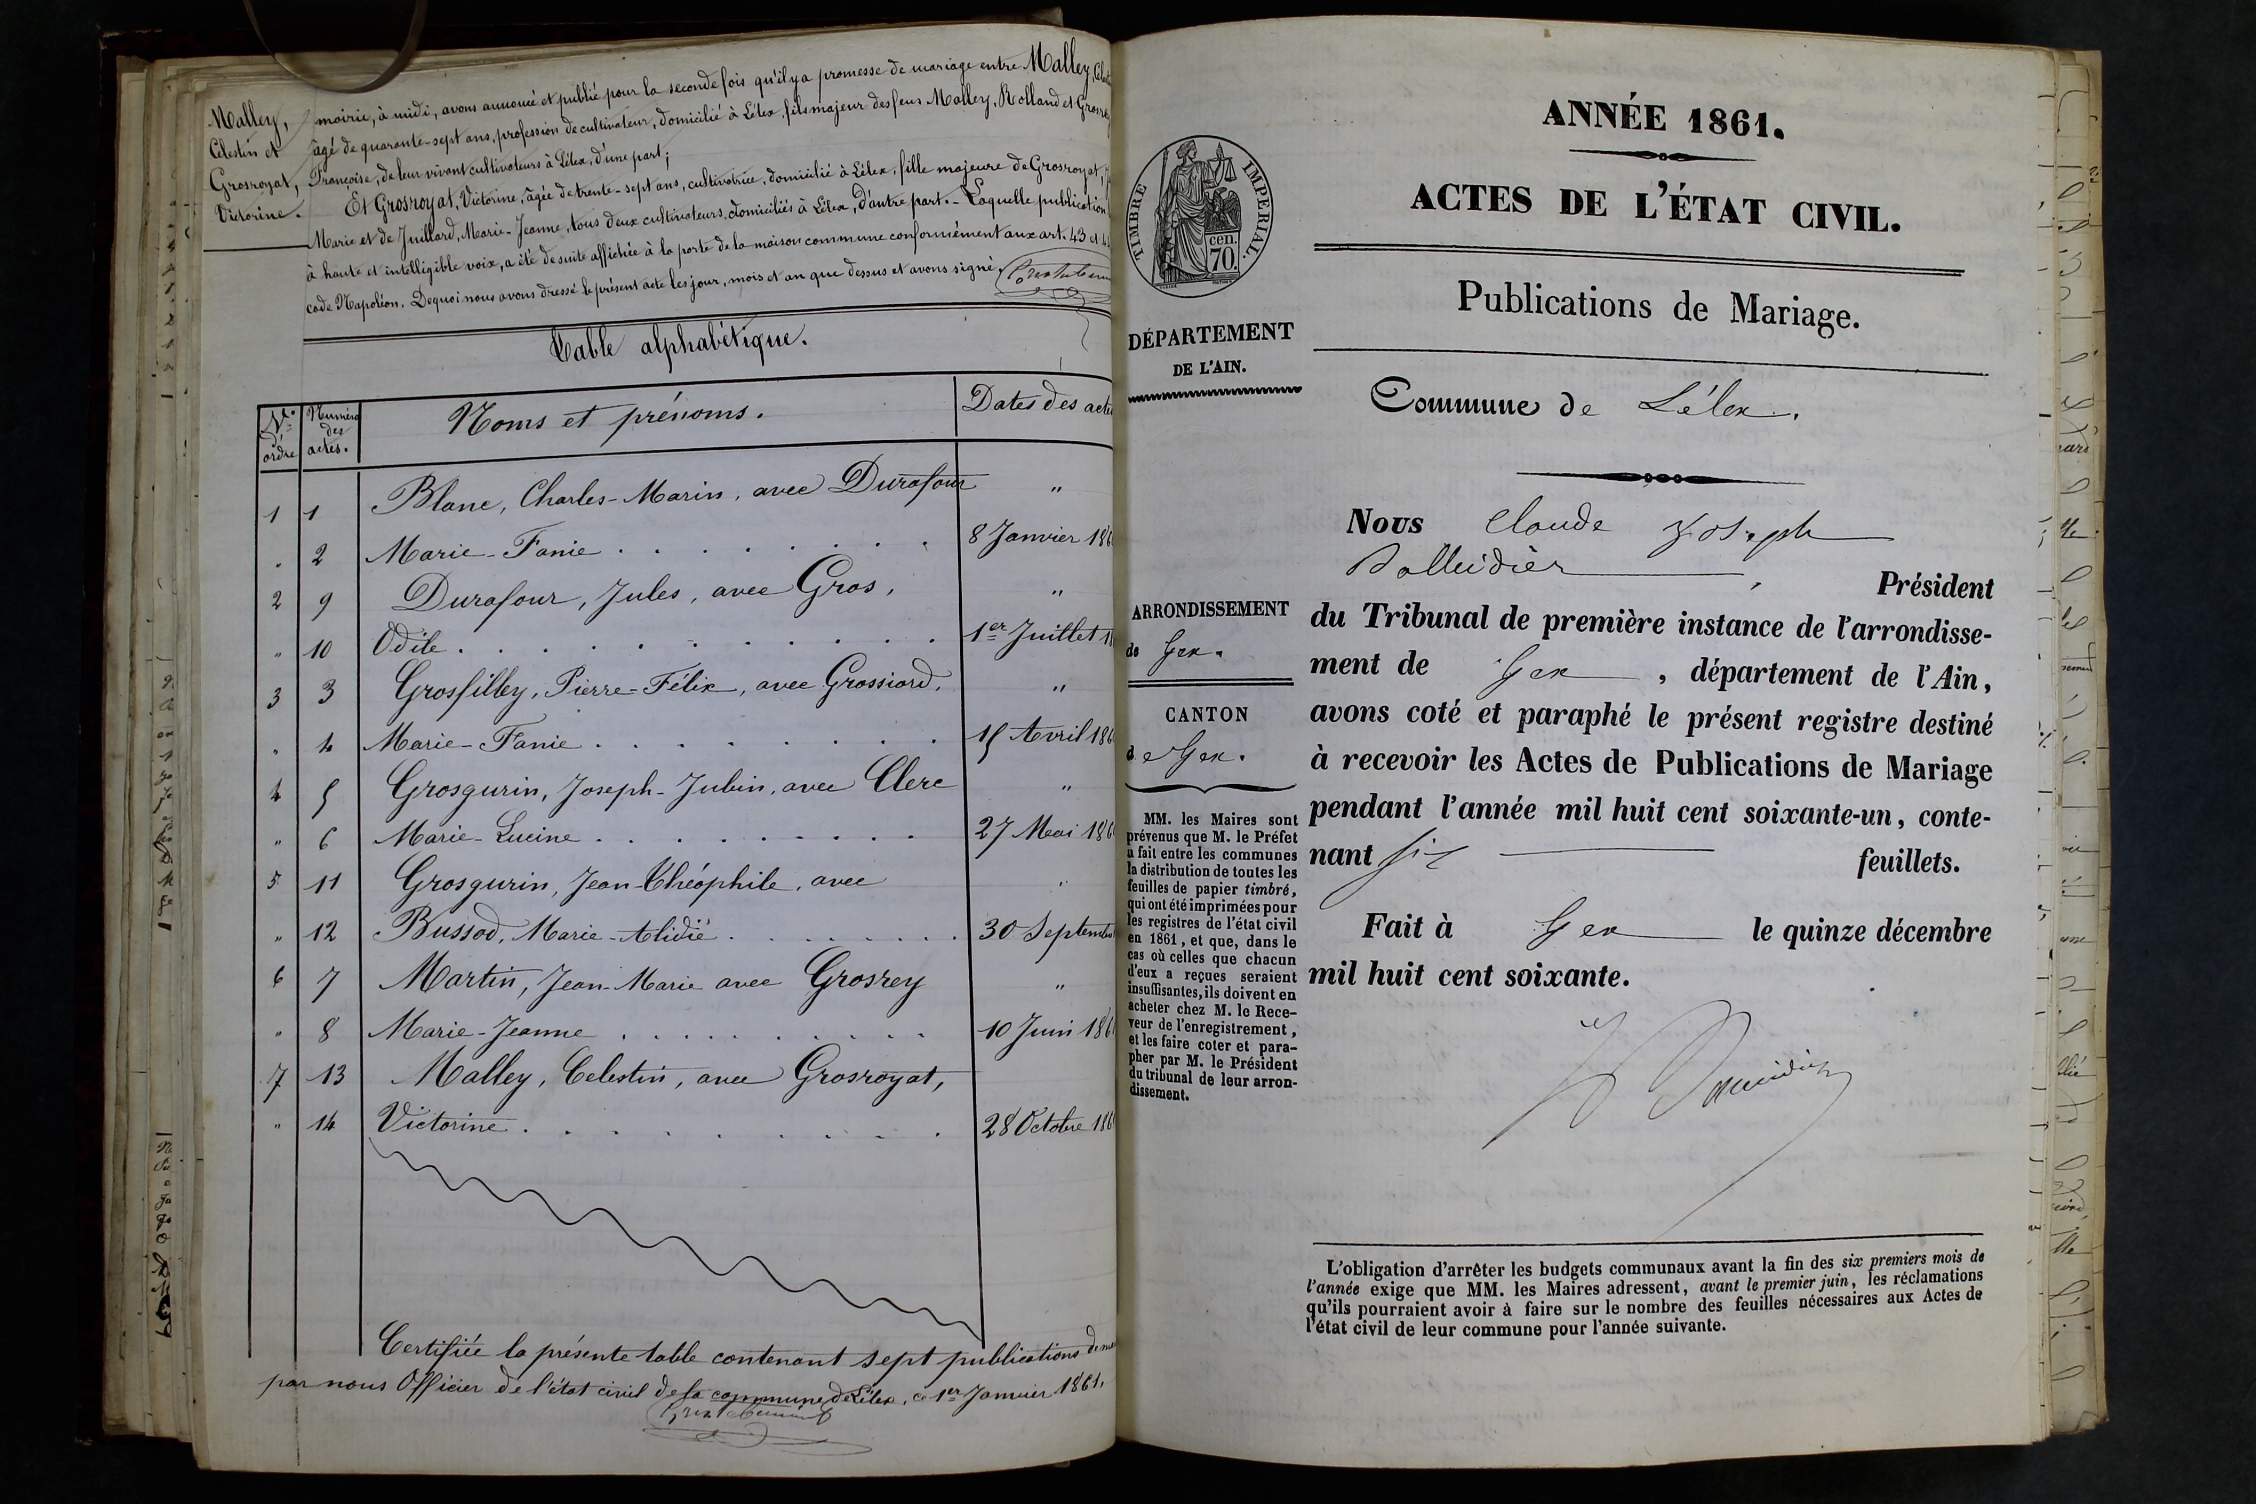 Malley,
Célestin et
Grosroyat,
Victorine.
mairie, à midi, avons annoncé et publié pour la seconde fois qu'il y a promesse de mariage entre Malley,
âgé de quarante-sept ans, profession de cultivateur, domicilié à Lélex, fils majeur des feus Malley, Rolland et
Françoise, de leur vivant cultivateurs à Lélex, d'une part;
Et Grosroyat, Victorine, âgée de trente-sept ans, cultivatrice, domicilié à Lélex, fille majeure de Grosroyat,
Marie et de Juillard, Marie-Jeanne, tous deux cultivateurs, domiciliés à Lélex, d'autre part. - Laquelle publication
à haute et intelligible voix, a été de suite affichée à la porte de la maison commune conformément aux art. 43 et
code Napoléon. De quoi nous avons dressé le présent acte les jour, mois et an que dessus et avons signé.
Table alphabétique.
N.º d'ordre
Numéro des actes.
Noms et prénoms.
Dates des actes
1 1 Blanc, Charles-Marin, avec Durafour "
" 2 Marie-Fanie . . . . . . . . 8 Janvier 186
2 9 Durafour, Jules, avec Gros, "
" 10 Odile . . . . . . . . . . 1er Juillet 1
3 3 Grosfilley, Pierre-Félix, avec Grossiord. "
" 4 Marie-Fanie . . . . . . . . 15 Avril 186
4 5 Grosgurin, Joseph-Jubin, avec Clerc "
" 6 Marie-Lucine . . . . . . . . 27 Mai 186
5 11 Grosgurin, Jean-Théophile, avec "
" 12 Bussod, Marie-Alidié . . . . . . 30 Septembre
6 7 Martin, Jean-Marie avec Grosrey "
" 8 Marie-Jeanne . . . . . . . . 10 Juin 186
7 13 Malley, Celestin, avec Grosroyat,
" 14 Victorine . . . . . . . . . 28 Octobre 186
Certifiée la présente table contenant sept publications de
par nous Officier de l'état civil de la commune de Lélex, ce 1er Janvier 1861.
TIMBRE IMPERIAL.
cen.
70.
DÉPARTEMENT
DE L'AIN.
ARRONDISSEMENT
de Gex.
CANTON
de Gex.
MM. les Maires sont
prévenus que M. le Préfet
a fait entre les communes
la distribution de toutes les
feuilles de papier timbré,
qui ont été imprimées pour
les registres de l'état civil
en 1861, et que, dans le
cas où celles que chacun
d'eux a reçues seraient
insuffisantes, ils doivent en
acheter chez M. le Rece-
veur de l'enregistrement,
et les faire coter et para-
pher par M. le Président
du tribunal de leur arron-
dissement.
ANNÉE 1861.
ACTES DE L'ÉTAT CIVIL.
Publications de Mariage.
Commune de Lélex.
Nous Claude Joseph
Président
du Tribunal de première instance de l'arrondisse-
ment de Gex, département de l'Ain,
avons coté et paraphé le présent registre destiné
à recevoir les Actes de Publications de Mariage
pendant l'année mil huit cent soixante-un, conte-
nant six feuillets.
Fait à Gex le quinze décembre
mil huit cent soixante.
L'obligation d'arrêter les budgets communaux avant la fin des six premiers mois de
l'année exige que MM. les Maires adressent, avant le premier juin, les réclamations
qu'ils pourraient avoir à faire sur le nombre des feuilles nécessaires aux Actes de
l'état civil de leur commune pour l'année suivante.